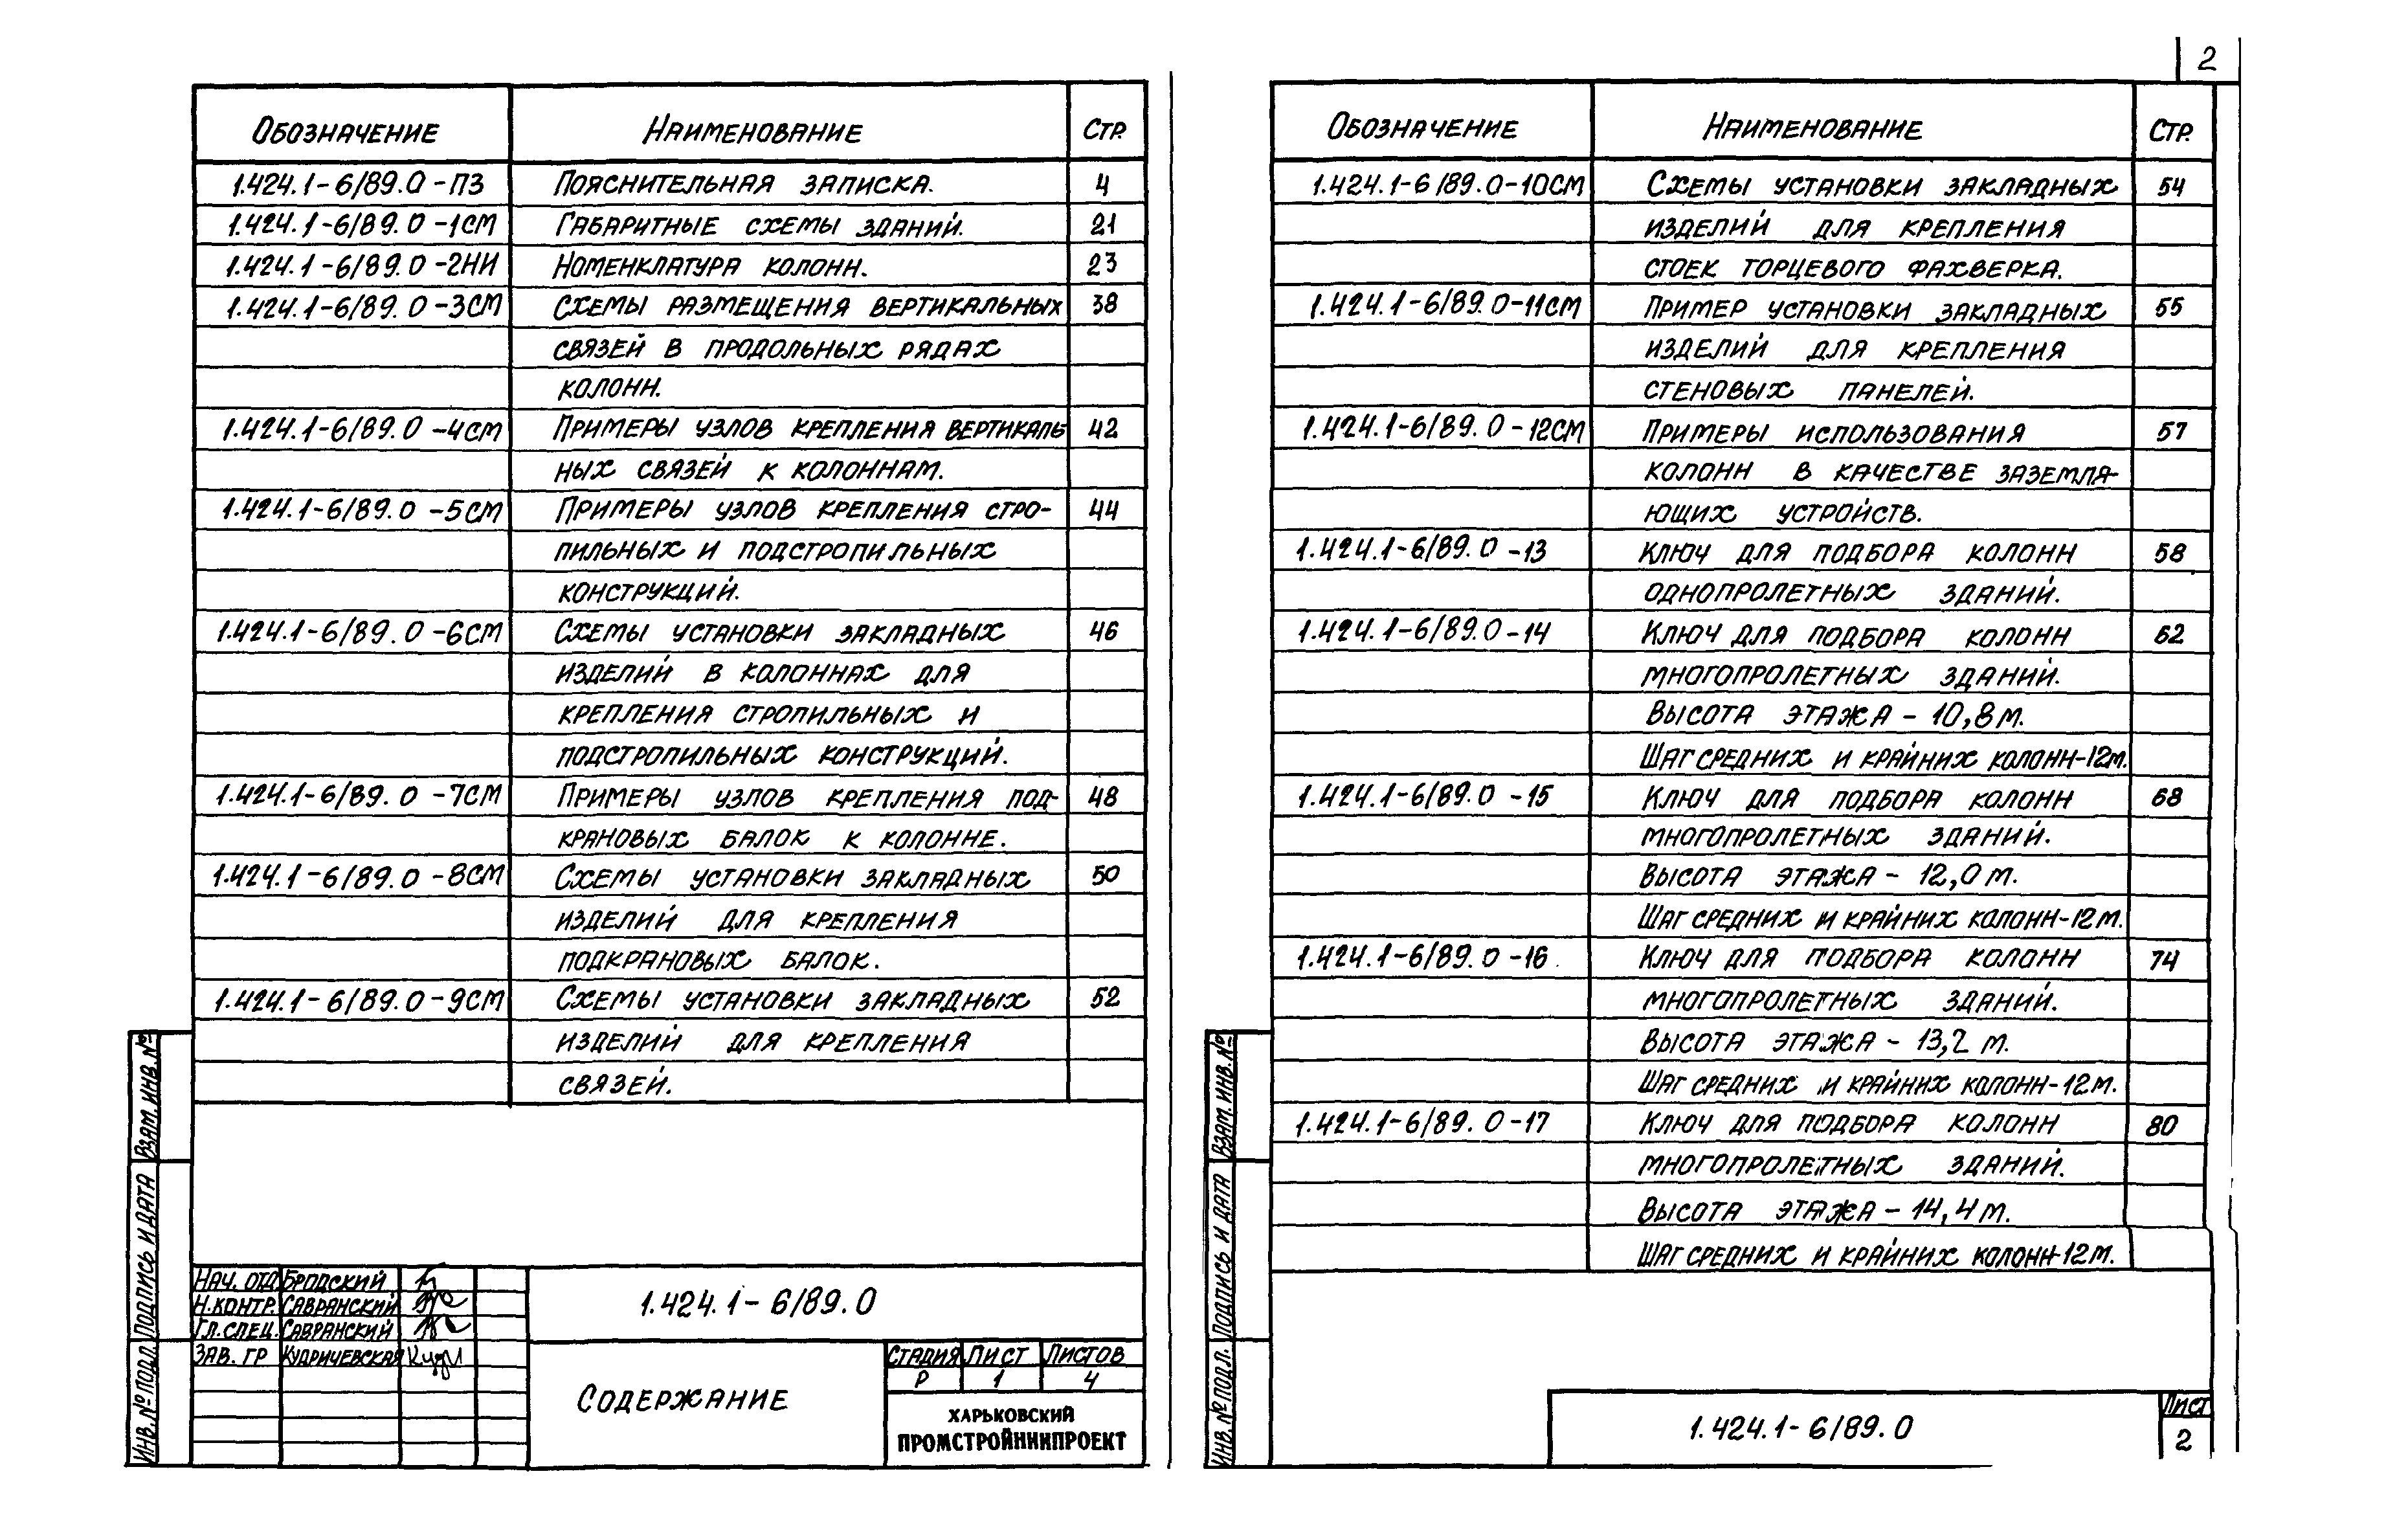 Обозначение Наименование Стр.
1.424.1-6/89.0-ПЗ Пояснительная записка. 4
1.424.1-6/89.0-1СМ Габаритные схемы зданий. 21
1.424.1-6/89.0-2НИ Номенклатура колонн. 23
1.424.1-6/89.0-3СМ Схемы размещения вертикальных 38
связей в продольных рядах
колонн.
1.424.1-6/89.0-4СМ Примеры узлов крепления вертикаль 42
ных связей к колоннам.
1.424.1-6/89.0-5СМ Примеры узлов крепления стро- 44
пильных и подстропильных
конструкций.
1.424.1-6/89.0-6СМ Схемы установки закладных 46
изделий в колоннах для
крепления стропильных и
подстропильных конструкций.
1.424.1-6/89.0-7СМ Примеры узлов крепления под- 48
крановых балок к колонне.
1.424.1-6/89.0-8СМ Схемы установки закладных 50
изделий для крепления
подкрановых балок.
1.424.1-6/89.0-9СМ Схемы установки закладных 52
изделий для крепления
связей.
Взам. инв. №
Подпись и дата
Инв. № подл.
Нач. отд. Бродский
Н.контр. Савранский
Гл.спец. Савранский
Зав. гр Кудричевская
1.424.1-6/89.0
Содержание
Стадия Лист Листов
Р 1 4
ХАРЬКОВСКИЙ
ПРОМСТРОЙНИИПРОЕКТ
2
Обозначение Наименование Стр.
1.424.1-6/89.0-10СМ Схемы установки закладных 54
изделий для крепления
стоек торцевого фахверка.
1.424.1-6/89.0-11СМ Пример установки закладных 55
изделий для крепления
стеновых панелей.
1.424.1-6/89.0-12СМ Примеры использования 57
колонн в качестве заземля-
ющих устройств.
1.424.1-6/89.0-13 Ключ для подбора колонн 58
однопролетных зданий.
1.424.1-6/89.0-14 Ключ для подбора колонн 62
многопролетных зданий.
Высота этажа - 10,8 м.
Шаг средних и крайних колонн-12м.
1.424.1-6/89.0-15 Ключ для подбора колонн 68
многопролетных зданий.
Высота этажа - 12,0 м.
Шаг средних и крайних колонн-12м.
1.424.1-6/89.0-16 Ключ для подбора колонн 74
многопролетных зданий.
Высота этажа - 13,2 м.
Шаг средних и крайних колонн-12м.
1.424.1-6/89.0-17 Ключ для подбора колонн 80
многопролетных зданий.
Высота этажа - 14,4 м.
Шаг средних и крайних колонн-12м.
Взам. инв. №
Подпись и дата
Инв. № подл.
1.424.1-6/89.0
Лист
2